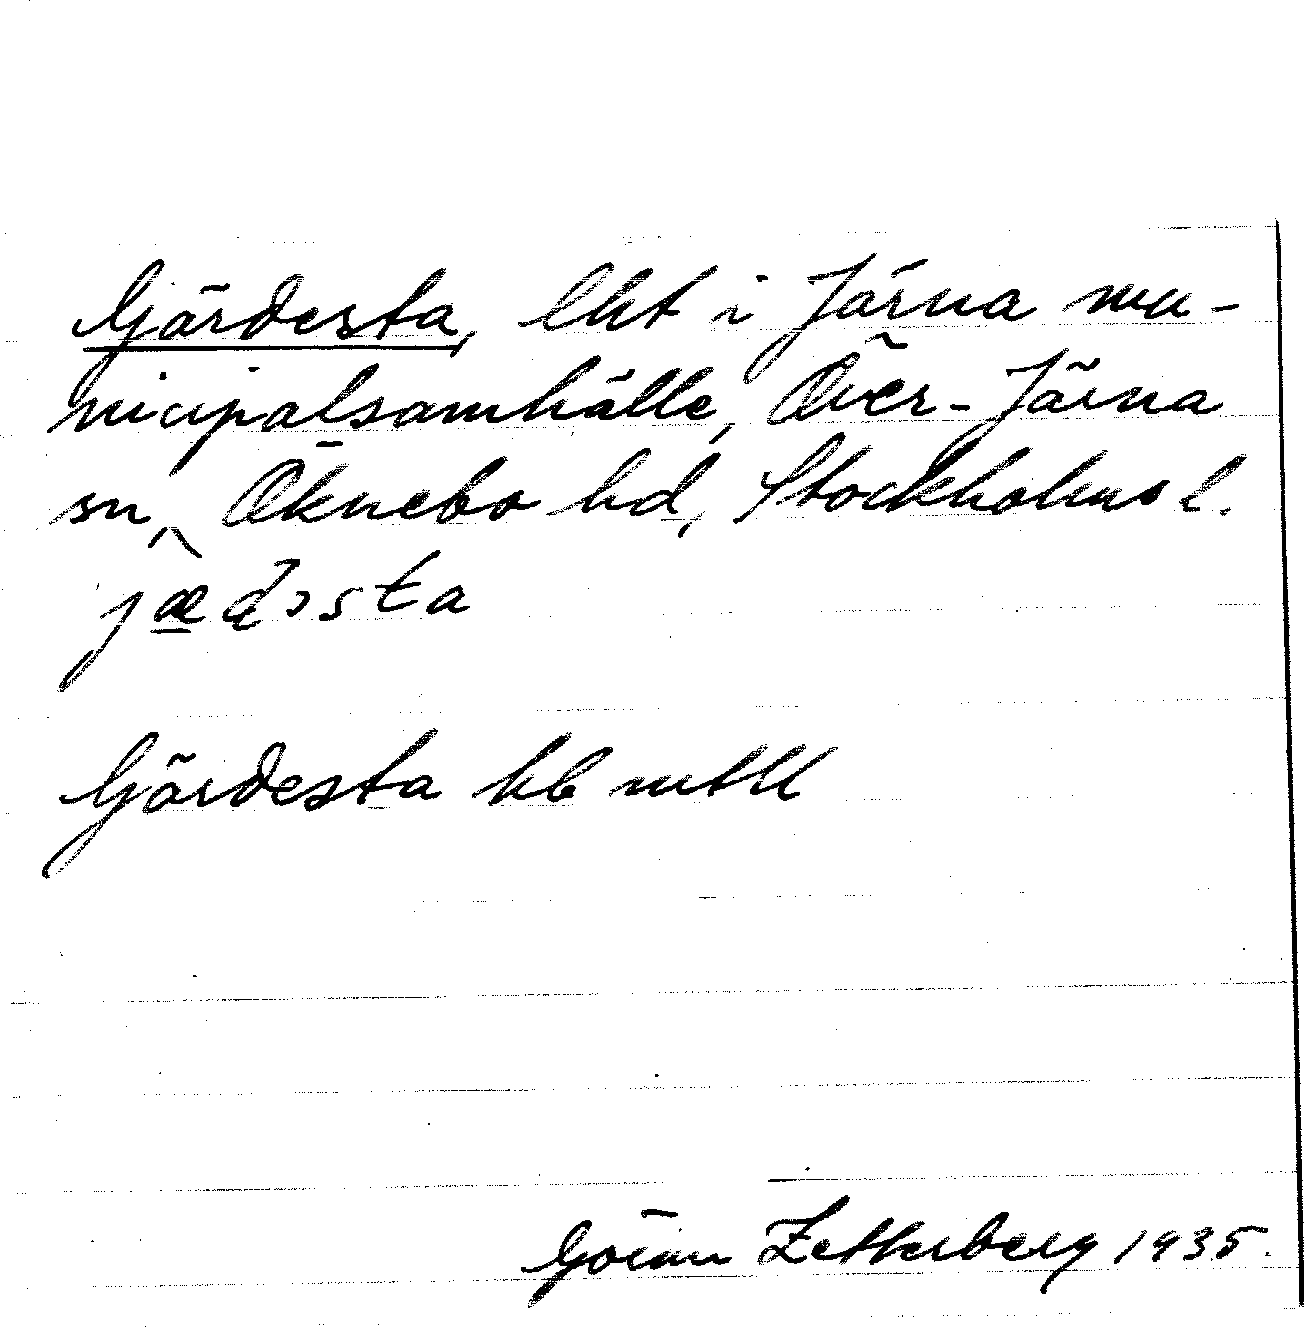 Gjärdesta, lht i Järna mu-
nicipalsamhälle, Över-Järna
sn, Öknebo hd, Stockholms l.
jæ̂ḍɔsta
Gjärdesta hb mtll
Göran Zetterberg 1935.